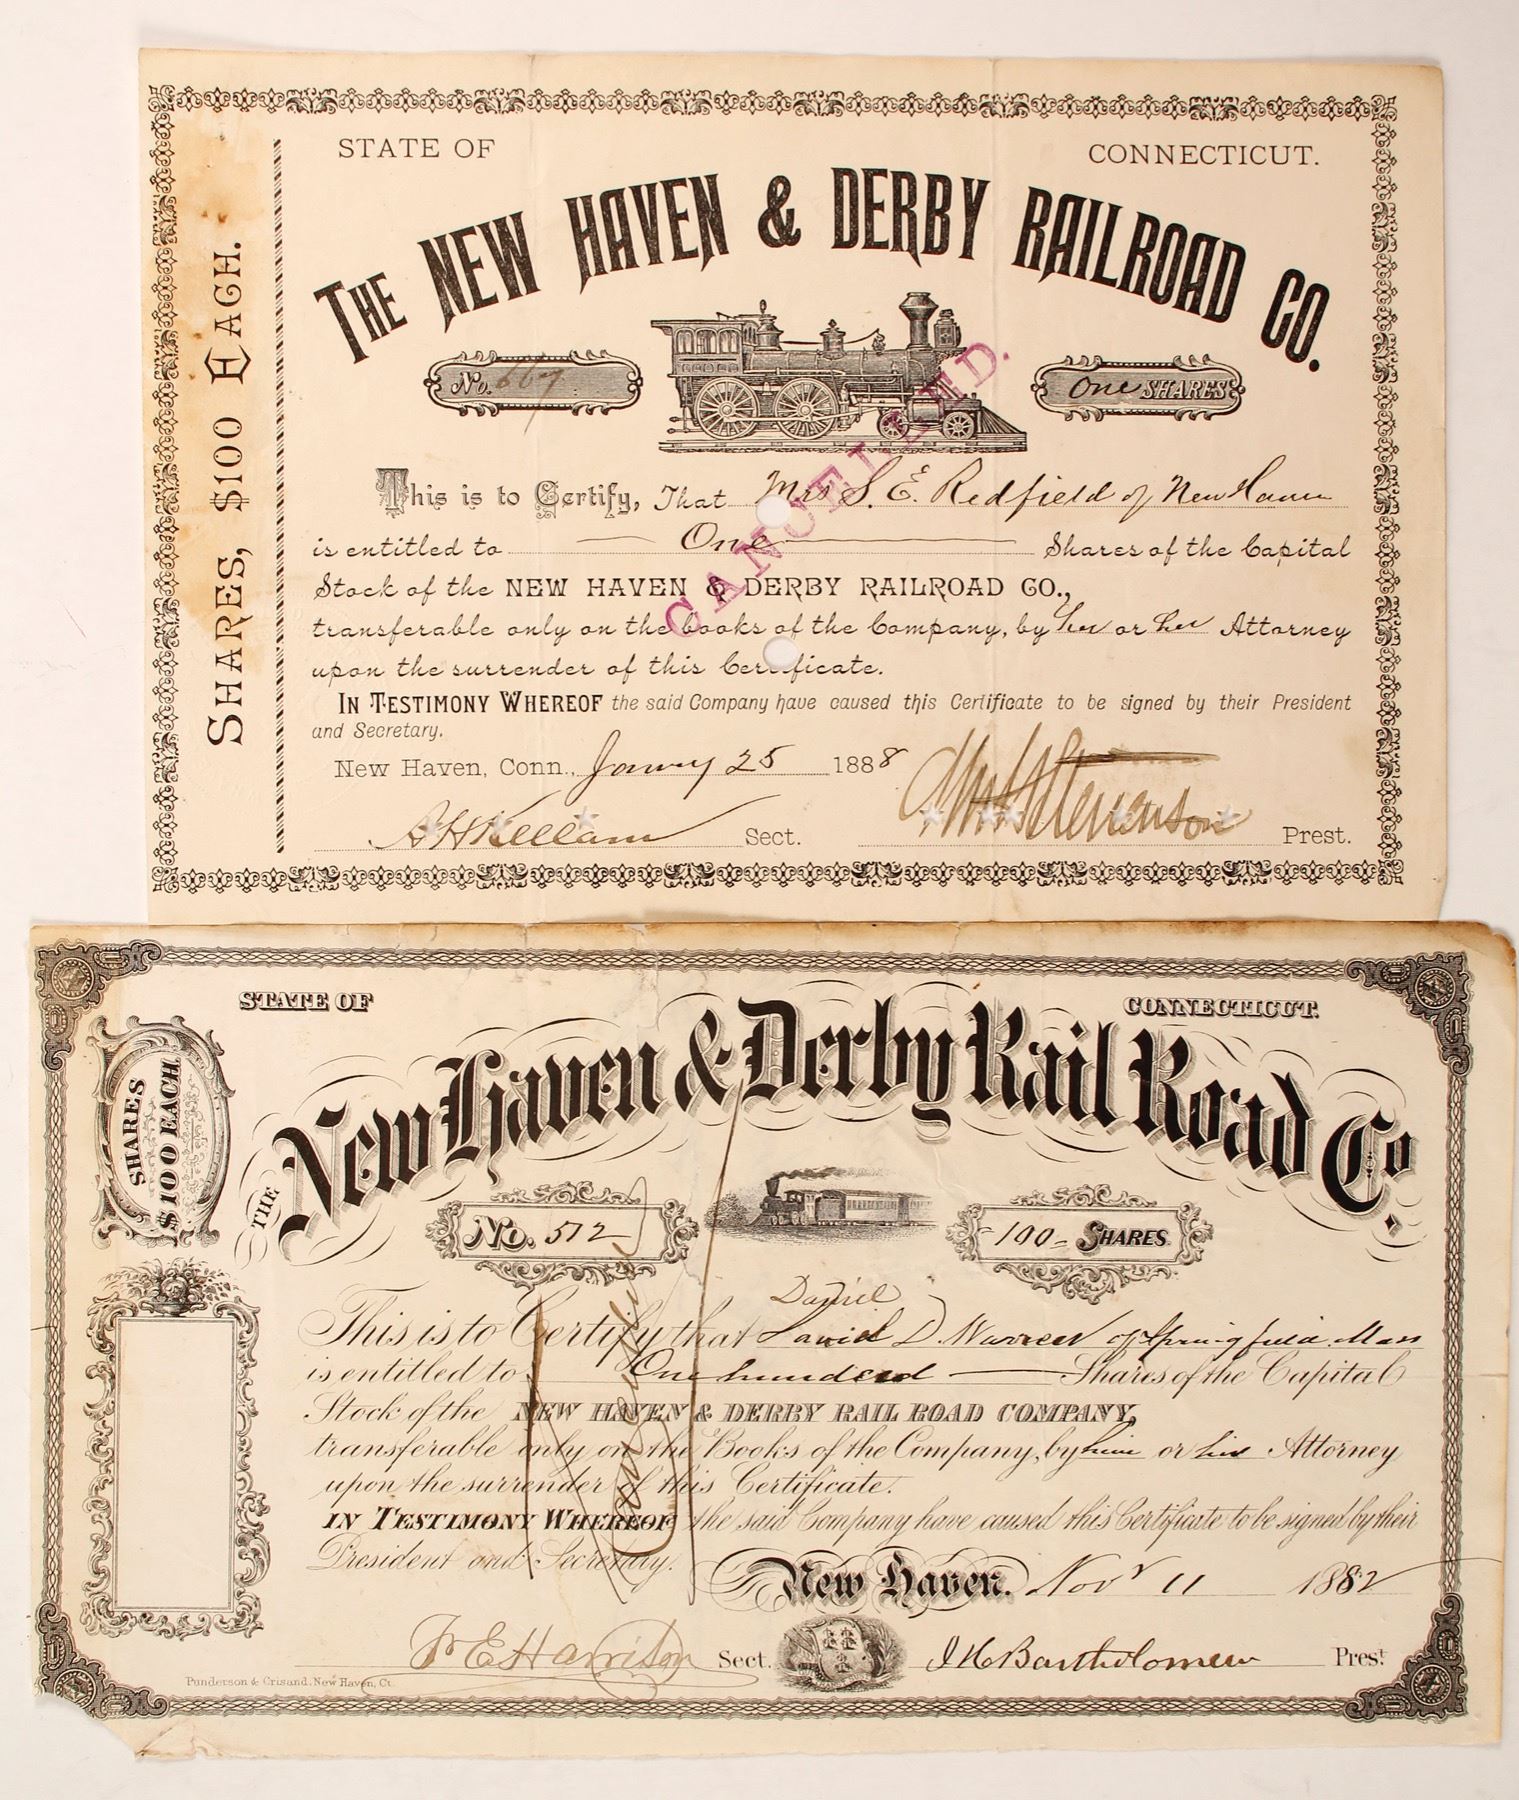 STATE OF CONNECTICUT.
THE NEW HAVEN & DERBY RAILROAD CO.
SHARES, $100 EACH.
No. 667
One SHARES
This is to Certify, That Mrs S. E. Redfield of New Haven
is entitled to One Shares of the Capital
Stock of the NEW HAVEN & DERBY RAILROAD CO.,
transferable only on the books of the Company, by her or her Attorney
upon the surrender of this Certificate.
IN TESTIMONY WHEREOF the said Company have caused this Certificate to be signed by their President
and Secretary.
New Haven, Conn., January 25 1888
A H Kellam Sect. Stevenson Prest.
CANCELLED.
STATE OF CONNECTICUT.
SHARES
$100 EACH
THE New Haven & Derby Rail Road Co.
No. 512
-100- SHARES.
Daniel
This is to Certify that David D. Warren of Springfield Mass
is entitled to One hundred Shares of the Capital
Stock of the NEW HAVEN & DERBY RAIL ROAD COMPANY,
transferable only on the Books of the Company, by him or his Attorney
upon the surrender of this Certificate.
IN TESTIMONY WHEREOF the said Company have caused this Certificate to be signed by their
President and Secretary.
New Haven. Novr 11 1882
Cancelled
F. E. Harrison Sect. J H Bartholomew Prest
Punderson & Crisand, New Haven, Ct.